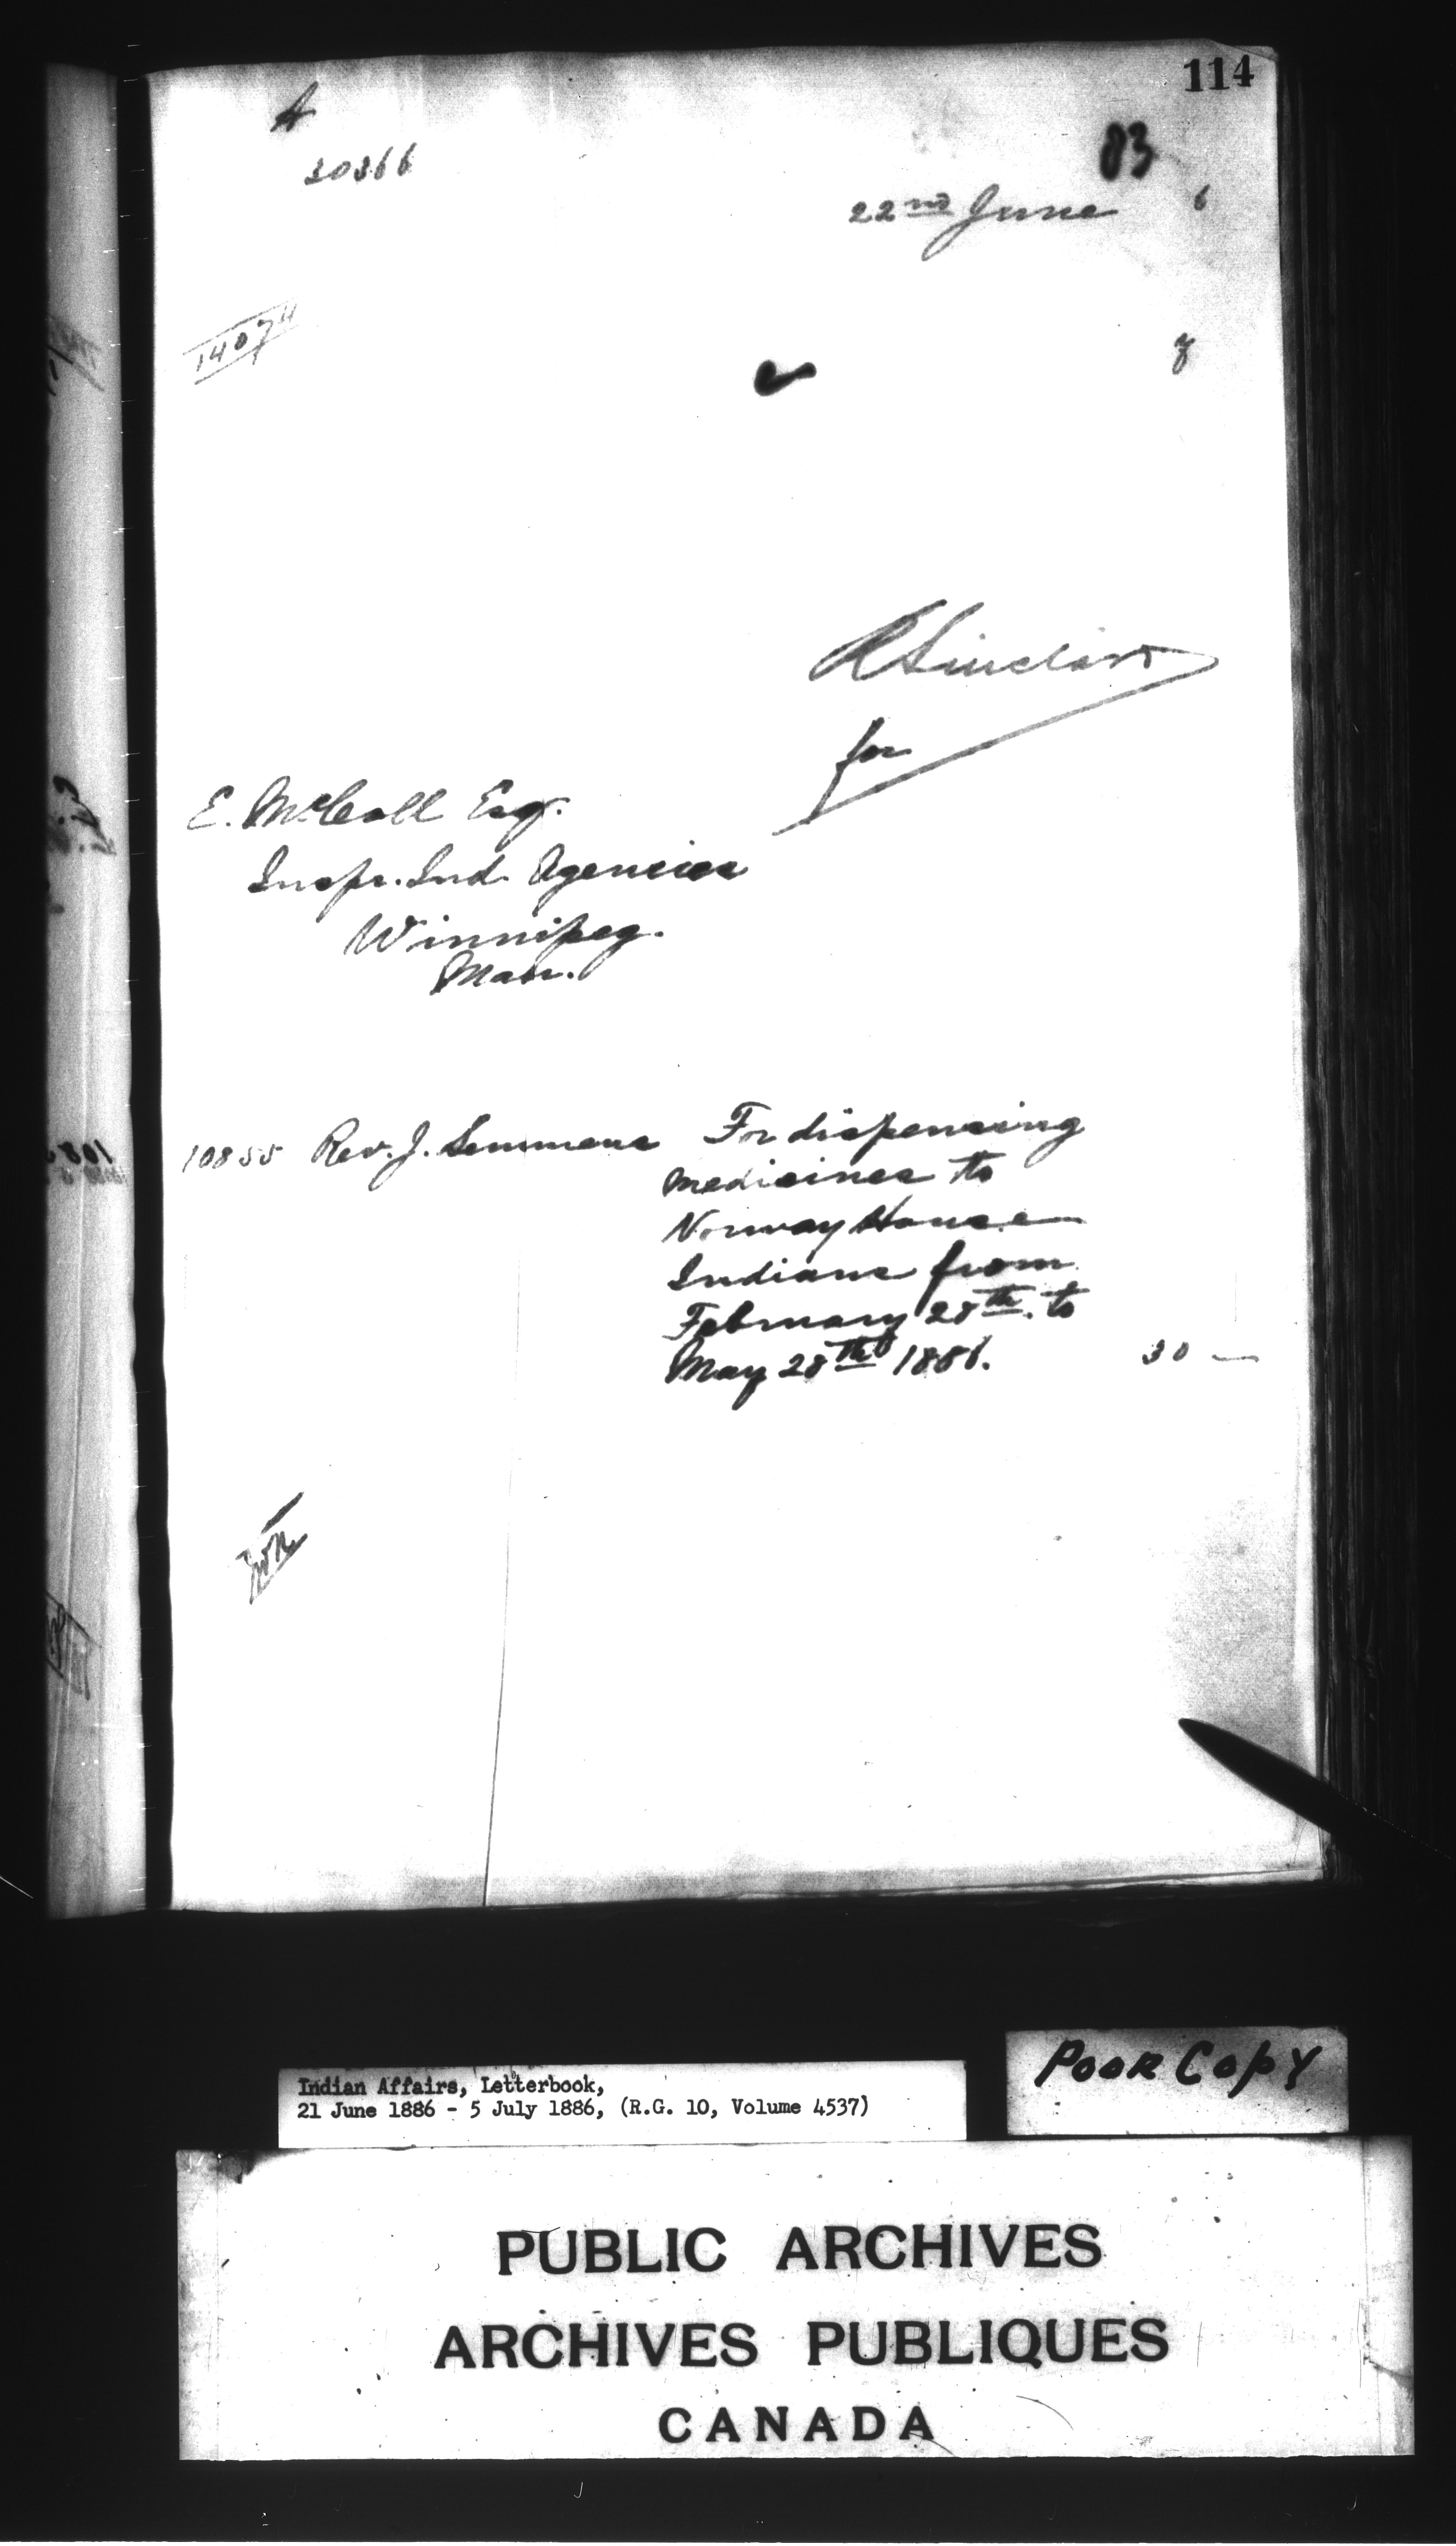 114
A
83
30366
22nd June 6
14074
R Sinclair
for
E. McColl Esq.
Inspr. Ind. Agencies
Winnipeg.
Man.
10855 Rev. J. Semmens For dispensing
medicines to
Norway House
Indians from
February 28th. to
May 28th 1886. 30 —
Indian Affairs, Letterbook,
21 June 1886 - 5 July 1886, (R.G. 10, Volume 4537)
POOR COPY
PUBLIC ARCHIVES
ARCHIVES PUBLIQUES
CANADA